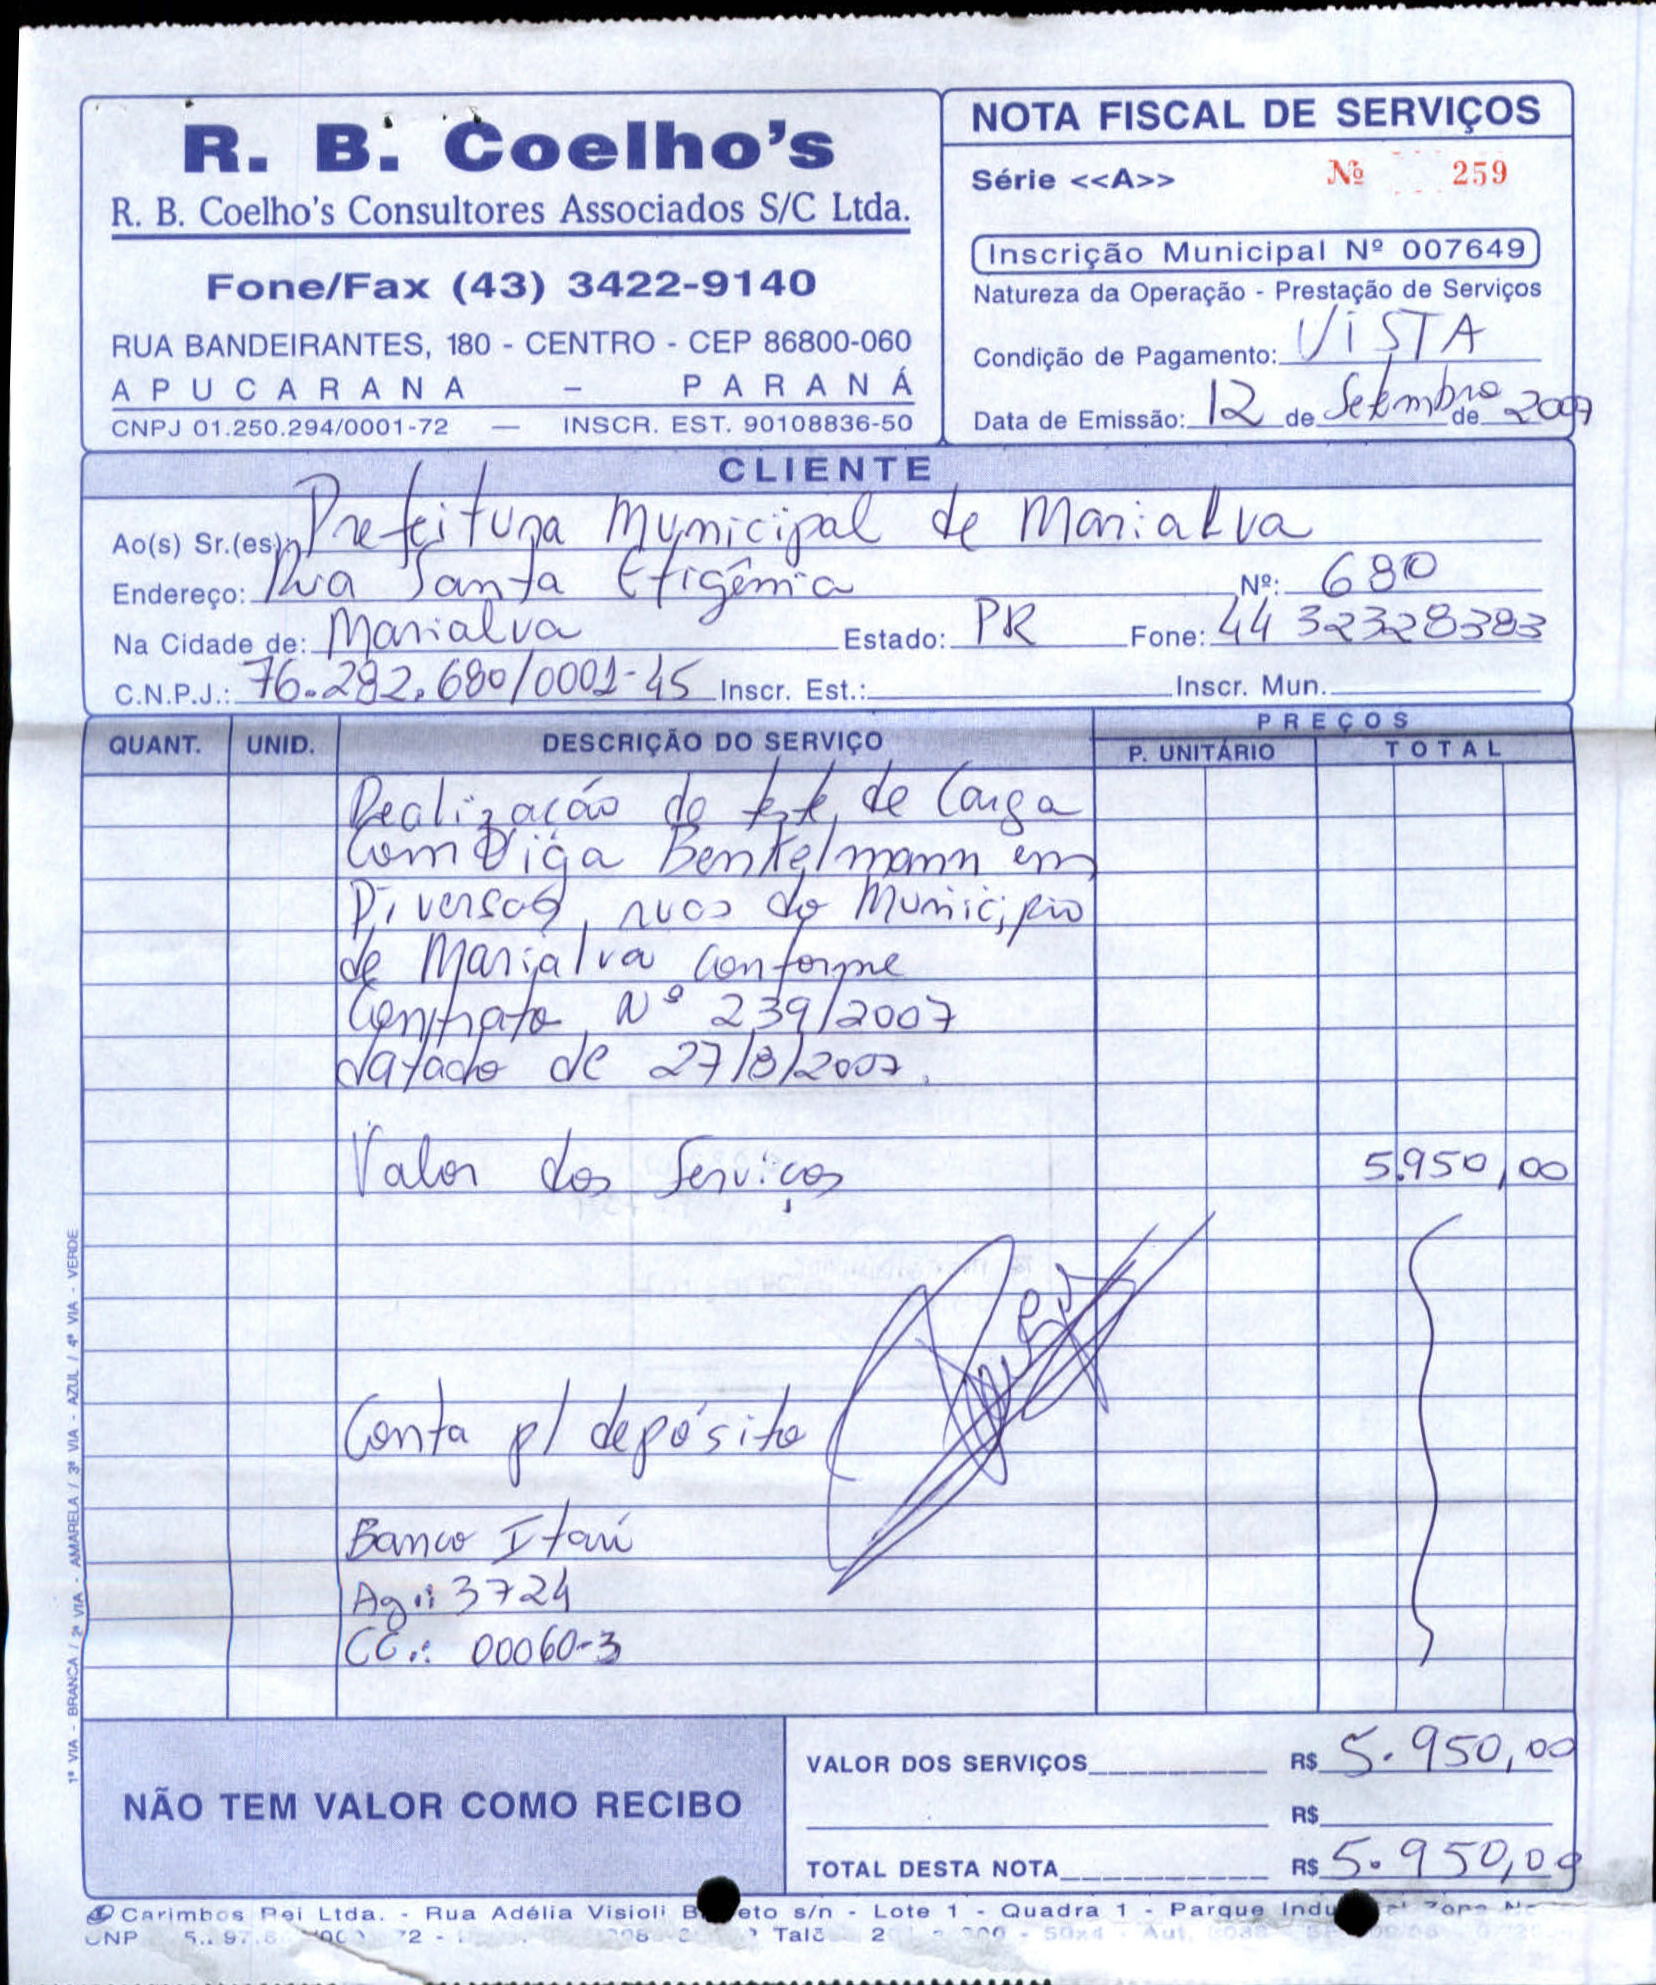 R. B. Coelho's
R. B. Coelho's Consultores Associados S/C Ltda.
Fone/Fax (43) 3422-9140
RUA BANDEIRANTES, 180 - CENTRO - CEP 86800-060
APUCARANA - PARANÁ
CNPJ 01.250.294/0001-72 — INSCR. EST. 90108836-50
NOTA FISCAL DE SERVIÇOS
Série <<A>> Nº 259
Inscrição Municipal Nº 007649
Natureza da Operação - Prestação de Serviços
Condição de Pagamento: VISTA
Data de Emissão: 12 de Setembro de 2007
CLIENTE
Ao(s) Sr.(es) Prefeitura Municipal de Marialva
Endereço: Rua Santa Efigênia Nº: 680
Na Cidade de: Marialva Estado: PR Fone: 44 32328383
C.N.P.J.: 76.282.680/0001-45 Inscr. Est.: Inscr. Mun.
QUANT. UNID. DESCRIÇÃO DO SERVIÇO PREÇOS
P. UNITÁRIO TOTAL
Realização de teste de Carga
Com Viga Benkelmann em
Diversas ruas do Município
de Marialva conforme
Contrato Nº 239/2007
datado de 27/8/2007.
Valor dos Serviços 5.950,00
Conta p/ depósito
Banco Itaú
Ag.: 3724
CC.: 00060-3
1ª VIA - BRANCA / 2ª VIA - AMARELA / 3ª VIA - AZUL / 4ª VIA - VERDE
NÃO TEM VALOR COMO RECIBO
VALOR DOS SERVIÇOS R$ 5.950,00
R$
TOTAL DESTA NOTA R$ 5.950,00
Carimbos Rei Ltda. - Rua Adélia Visioli s/n - Lote 1 - Quadra 1 - Parque